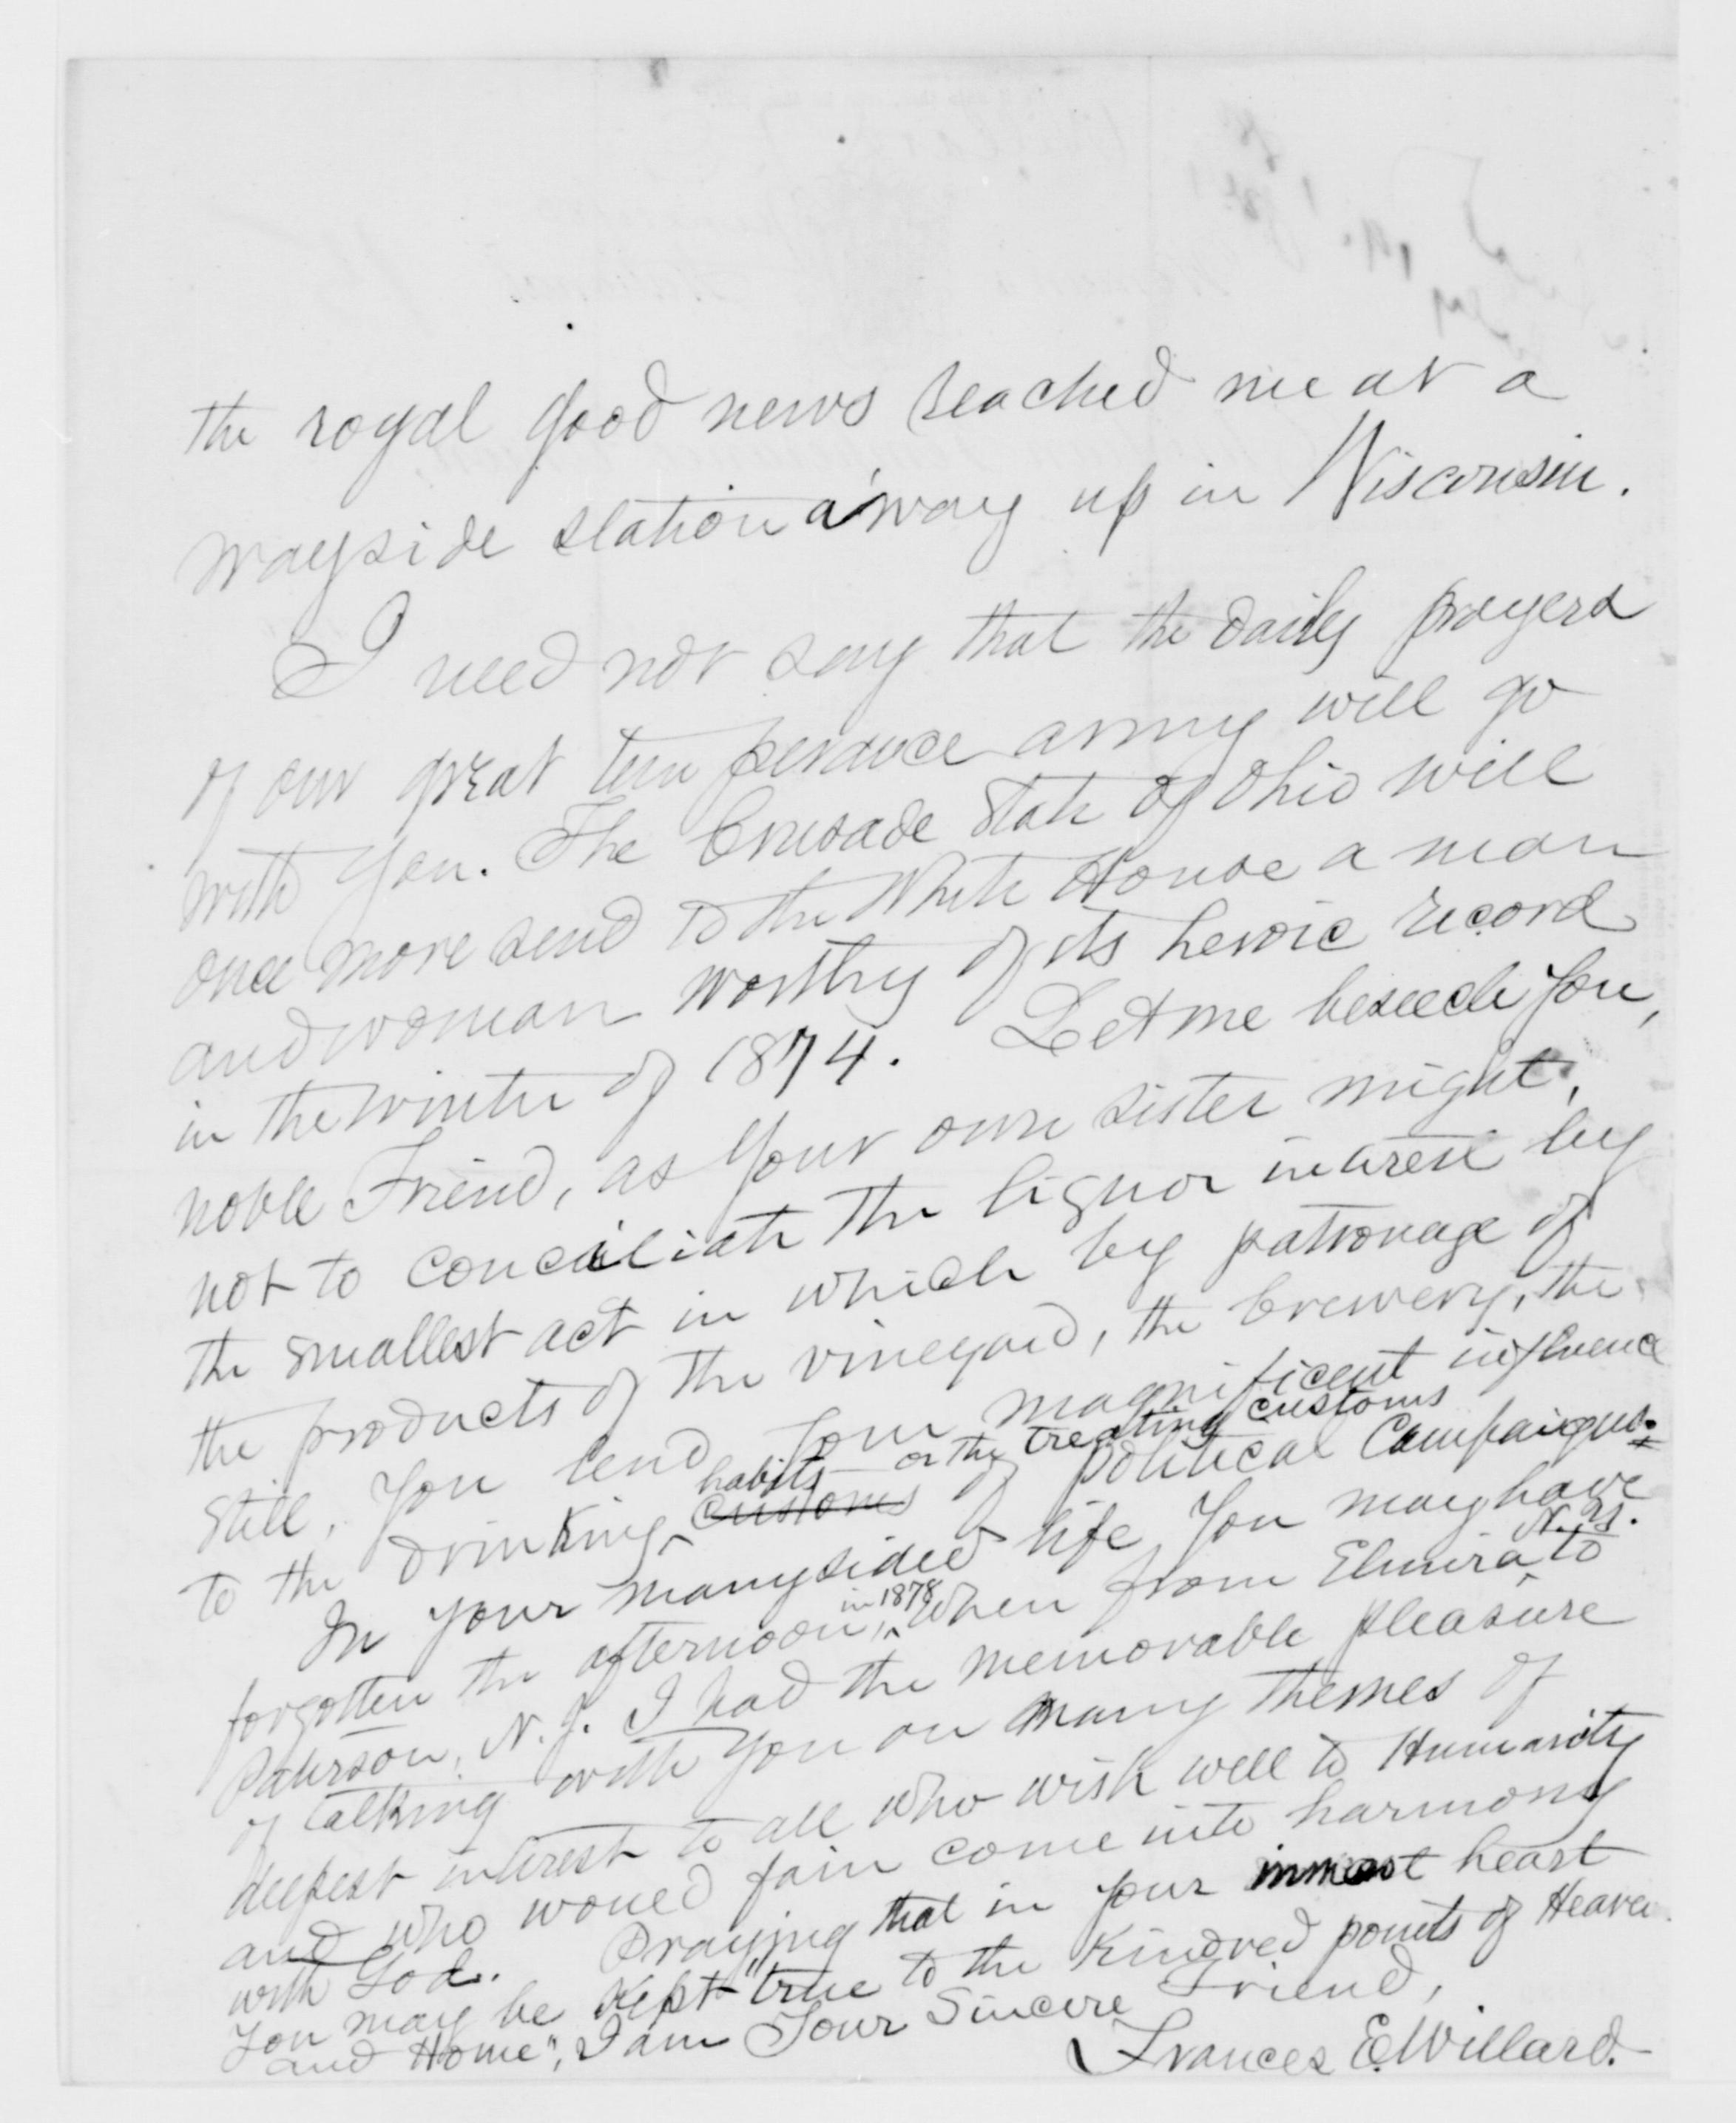 the royal good news reached me at a
wayside station a'way up in Wisconsin.
I need not say that the daily prayers
of our great temperance army will go
with You. The Crusade State of Ohio will
once more send to the White House a man
and woman worthy of its heroic record
in the winter of 1874. Let me beseech You,
noble Friend, as Your own sister might,
not to conciliate the liquor interest by
the smallest act in which by patronage of
the products of the vineyard, the brewery, the
Still, You lend Your magnificent influence
habits or the treating customs
to the drinking ^ customs of political Campaigns.
In your manysided life You may have
in 1878 N.Y.
forgotten the afternoon, ^ when from Elmira ^ to
Paterson, N.J. I had the memorable pleasure
of talking with You on many themes of
deepest interest to all who wish well to Humanity
and who would fain come into harmony
with God. Praying that in your inmost heart
You may be kept "true to the kindred points of Heaven
and Home", I am Your Sincere Friend,
Frances E. Willard.